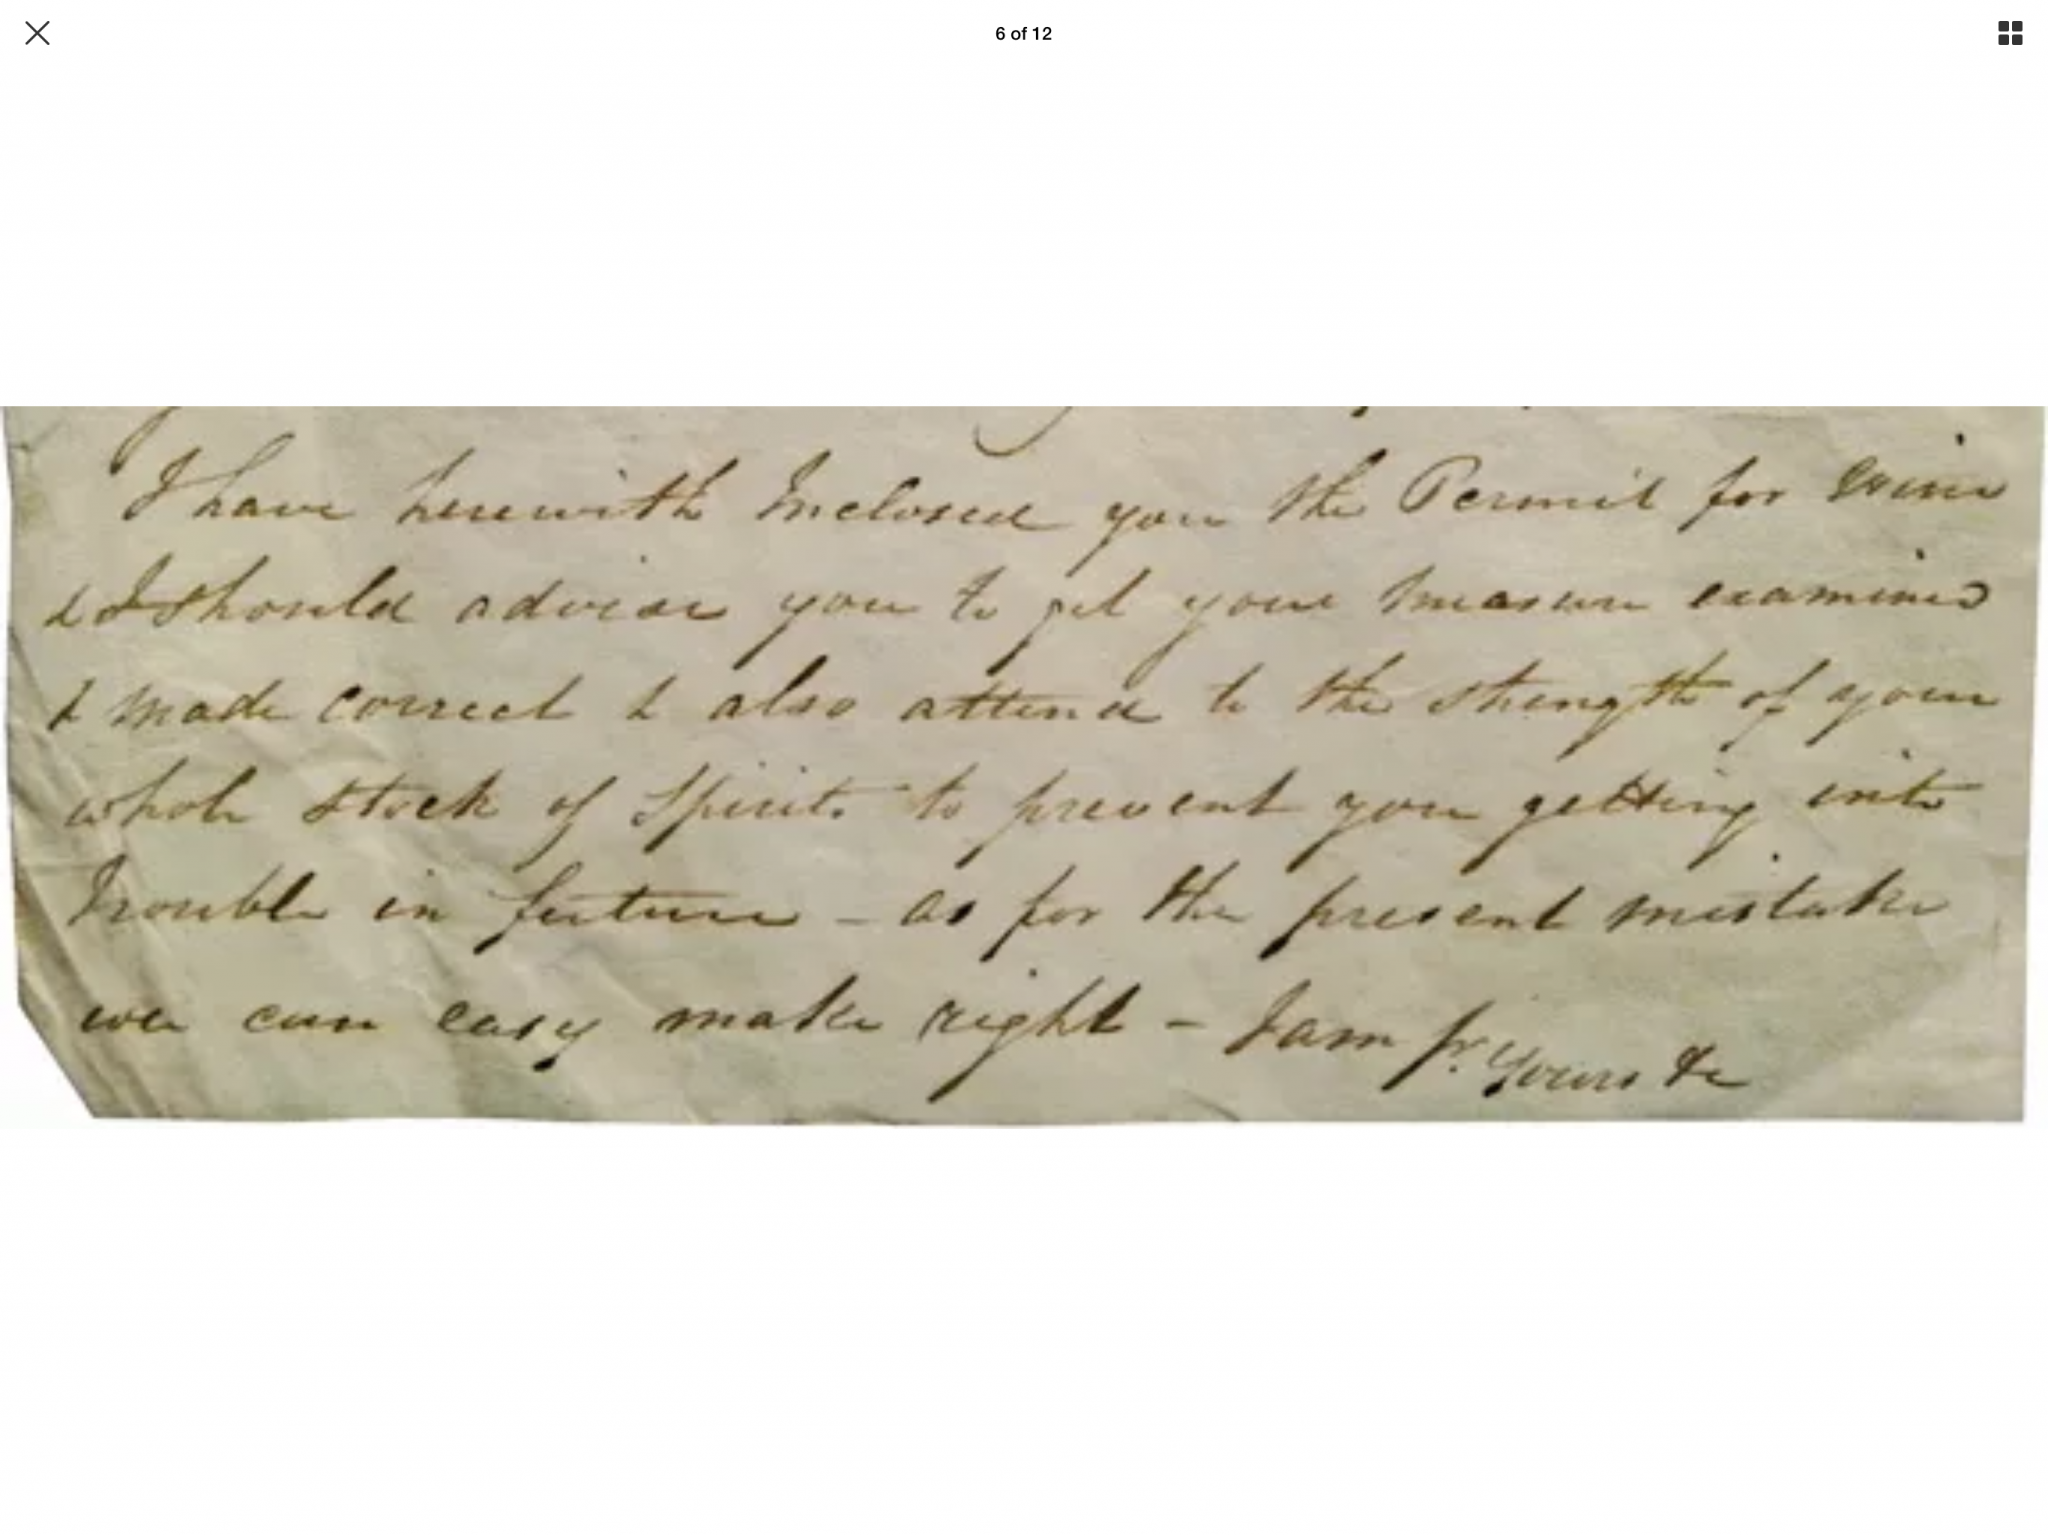 6 of 12
I have herewith Inclosed you the Permit for wine
& I should advise you to get your measure examined
& made correct & also attend to the strength of your
whole stock of Spirits to prevent you getting into
Trouble in future – as for the present mistake
we can easy make right – I am Sr. Yours &c